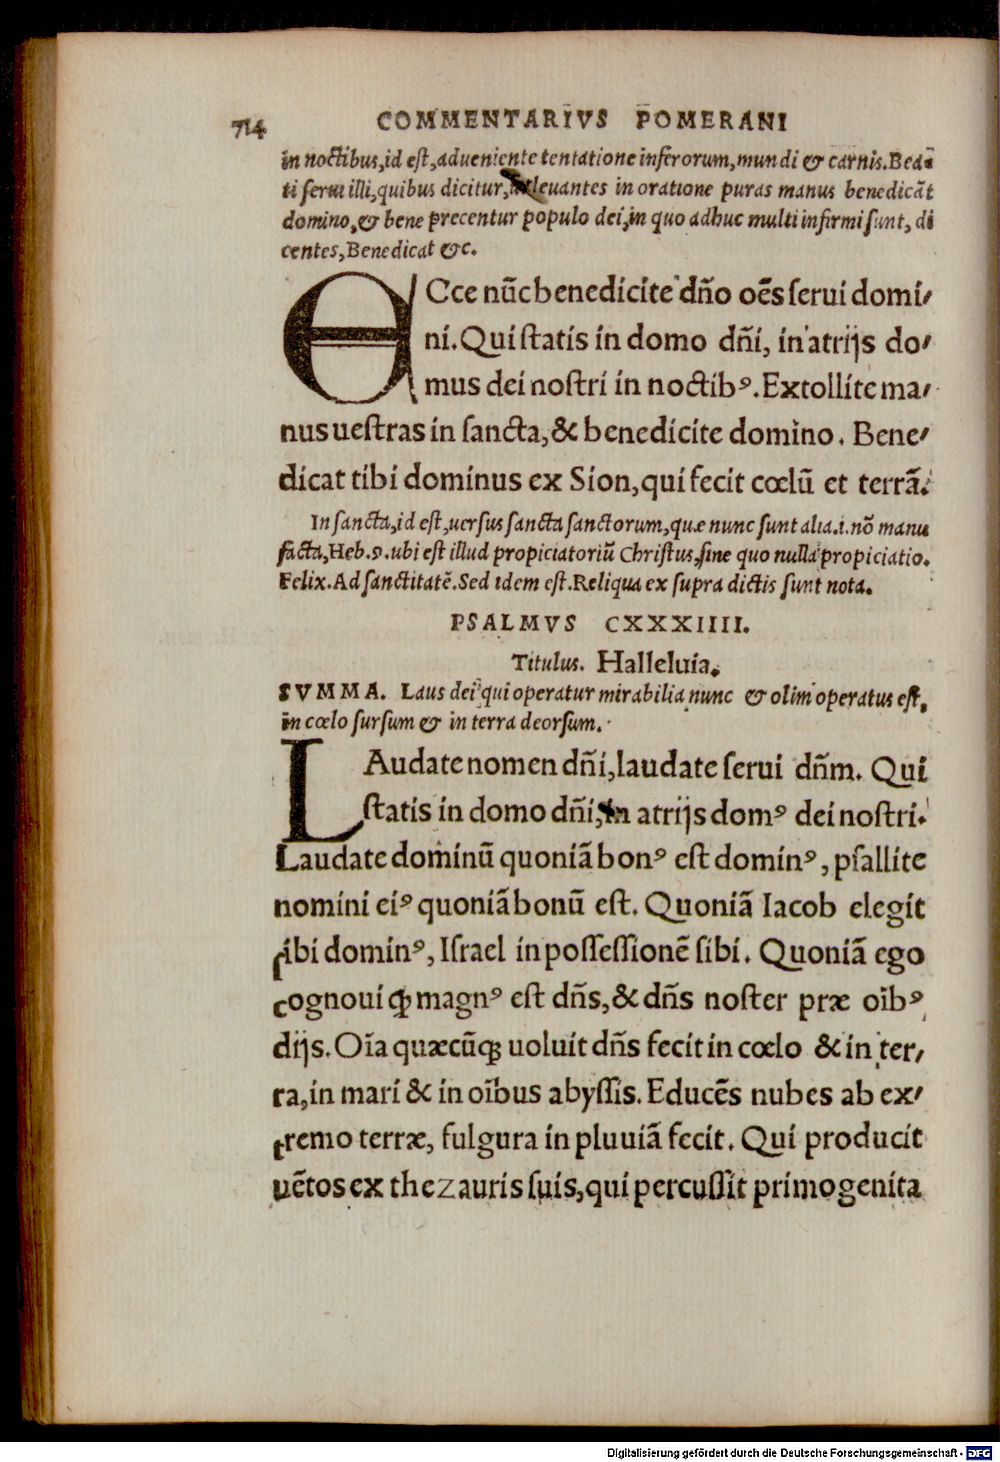 714 COMMENTARIVS POMERANI
in noctibus,id est,adueniente tentatione inferorum,mundi & carnis.Bea⸗
ti serui illi,quibus dicitur, leuantes in oratione puras manus benedicāt
domino,& bene precentur populo dei,in quo adhuc multi infirmi sunt, di
centes,Benedicat &c.
ECce nūc benedicite dño oēs serui domi⸗
ni.Qui statis in domo dñi, in atrijs do⸗
mus dei nostri in noctibꝰ.Extollite ma⸗
nus uestras in sancta,& benedicite domino. Bene⸗
dicat tibi dominus ex Sion,qui fecit cœlū et terrā.
In sancta,id est,uersus sancta sanctorum,quæ nunc sunt alia.i.nō manu
facta,Heb.9.ubi est illud propiciatoriū Christus,sine quo nulla propiciatio.
Felix.Ad sanctitatē.Sed idem est.Reliqua ex supra dictis sunt nota.
PSALMVS CXXXIIII.
Titulus. Halleluia.
SVMMA. Laus dei qui operatur mirabilia nunc & olim operatus est,
in cœlo sursum & in terra deorsum.
LAudate nomen dñi,laudate serui dñm. Qui
statis in domo dñi,in atrijs domꝰ dei nostri.
Laudate dominū quoniā bonꝰ est dominꝰ, psallite
nomini eiꝰ quoniā bonū est. Quoniā Iacob elegit
sibi dominꝰ, Israel in possessionē sibi. Quoniā ego
cognoui ꝙ magnꝰ est dñs,& dñs noster præ oībꝰ
dijs.Oīa quæcūqꝫ uoluit dñs fecit in cœlo & in ter⸗
ra,in mari & in oībus abyssis.Educēs nubes ab ex⸗
tremo terræ, fulgura in pluuiā fecit. Qui producit
uētos ex thezauris suis,qui percussit primogenita
Digitalisierung gefördert durch die Deutsche Forschungsgemeinschaft - DFG